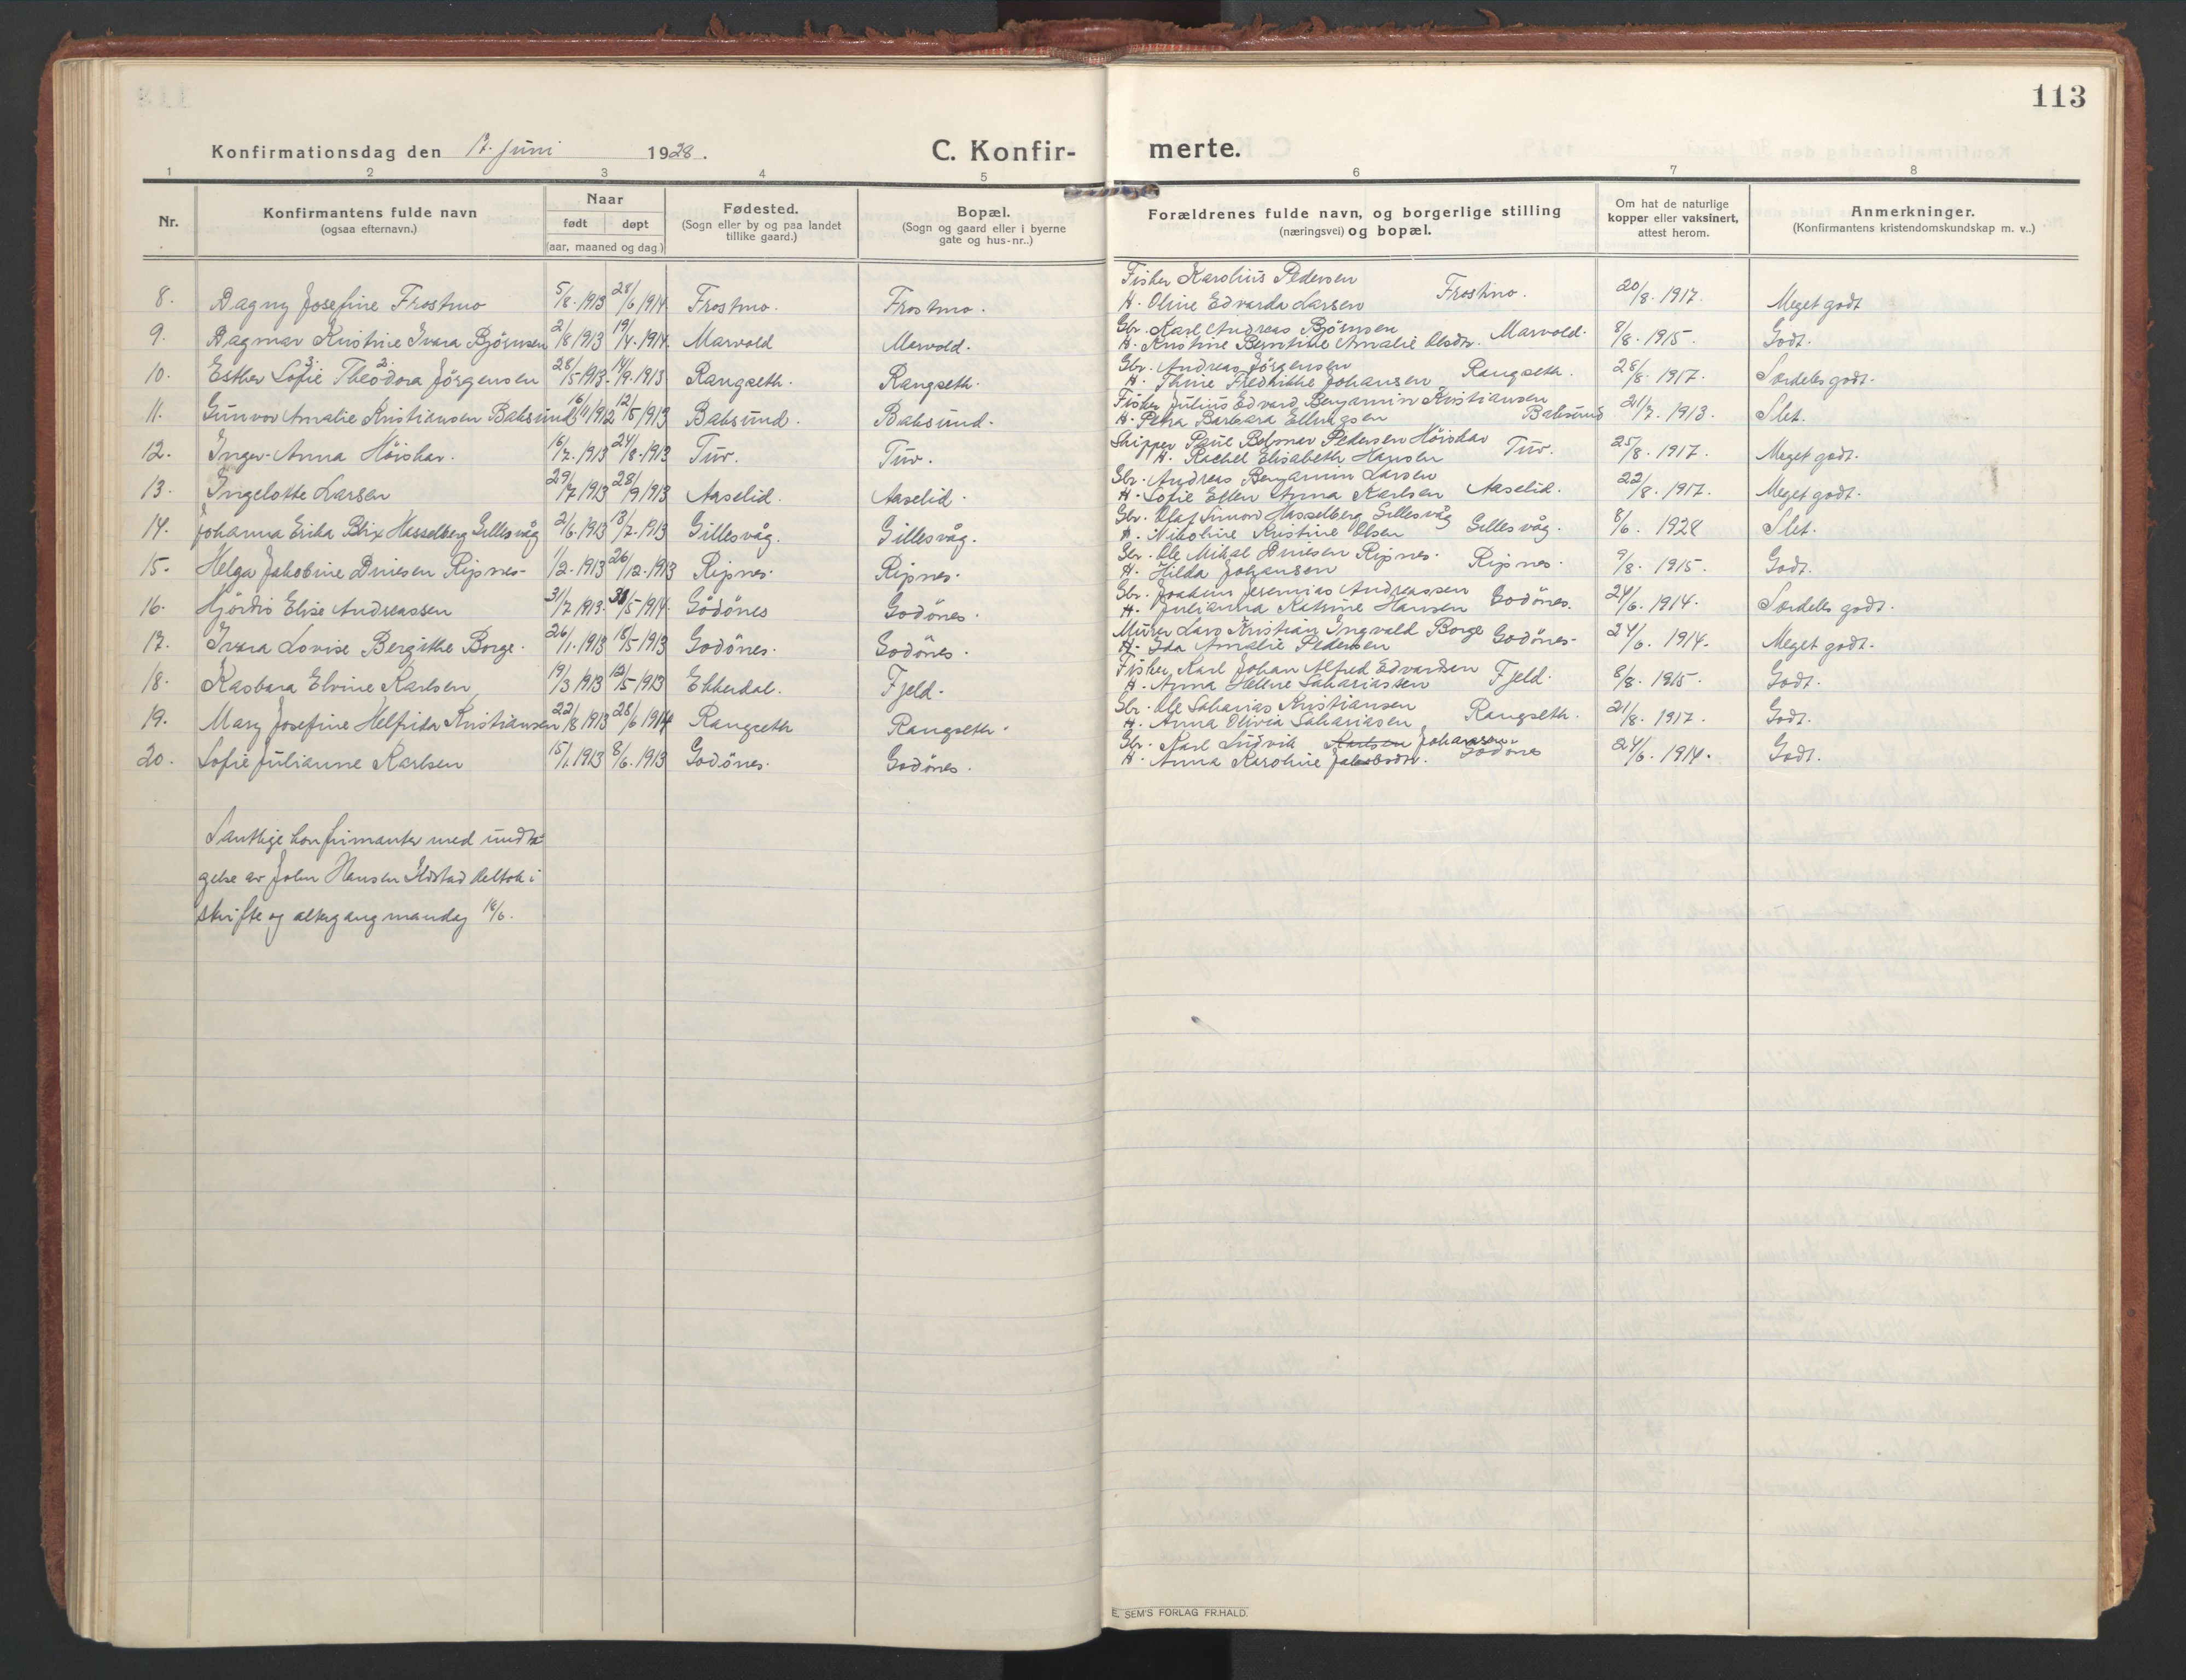 113
Konfirmationsdag den 17. Juni 1928.
C. Konfir-
merte.
1 2 3 4 5 6 7 8
Nr.
Konfirmantens fulde navn
(ogsaa efternavn.)
Naar
født døpt
(aar, maaned og dag)
Fødested.
(Sogn eller by og paa landet
tillike gaard.)
Bopæl.
(Sogn og gaard eller i byerne
gate og hus-nr..)
Forældrenes fulde navn, og borgerlige stilling
(næringsvei) og bopæl.
Om hat de naturlige
kopper eller vaksinert,
attest herom.
Anmerkninger.
(Konfirmantens kristendomskundskap m. v..)
Fisker Karolius Pedersen
8. Dagny Josefine Frostmo 5/8. 1913 28/6 1914 Frostmo. Frostmo. H. Oline Edvarda Larsen Frostmo. 20/8. 1917. Meget godt
Gbr. Karl Andreas Björnsen
9. Dagmar Kristine Ivara Björnsen 2/8 1913 19/4. 1914. Marvold Marvold. H. Kristine Berntine Amalie Olsdtr. Marvold. 8/8. 1915. Godt.
Gbr. Andreas Jörgensen
10. Esther Sofie 3. Theodora 2. Jörgensen 28/5 1913. 14/9. 1913 Rangseth. Rangseth. H. Thine Fredrikke Johansen Rangseth. 28/8. 1917. Særdeles godt.
Fisker Julius Edvard Benjamin Kristiansen
11. Gunvor Amalie Kristiansen Baksund 16/11 1912 12/5 1913 Baksund. Baksund. H. Petra Barbara Ellingsen Baksund 21/7. 1913. Slet.
Skipper Paul Belmar Pedersen Höiskar
12. Inger-Anna Höiskar. 16/7. 1913 24/8. 1913 Tuv. Tuv. H. Rachel Elisabeth Hansen Tuv. 25/8. 1917. Meget godt.
Gbr. Andreas Benjamin Larsen
13. Ingelotte Larsen 29/7 1913 28/9 1913 Aaselid. Aaselid. H. Sofie Ellen Anna Karlsen Aaselid. 22/8. 1917. Meget godt.
Gbr. Olaf Simon Hasselberg Gillesvåg
14. Johanna Erika Blix Hasselberg Gillesvåg 2/6. 1913 13/7. 1913 Gillesvåg. Gillesvåg. H. Nikoline Kristine Olsen Gillesvåg. 8/6. 1928 Slet.
Gbr. Ole Mikal Dinesen Ripnes.
15. Helga Jakobine Dinesen Ripnes- 1/2. 1913 26/12. 1913 Ripnes. Ripnes. H. Hilda Johansen Ripnes. 9/8. 1915. Godt.
Gbr. Joakim Jeremias Andreassen
16. Hjördis Elise Andreassen 31/7. 1913. 31/5 1914. Godönes Godönes. H. Julianna Katrine Hansen Godönes. 24/6. 1914. Særdeles godt.
Murer Lars Kristian Ingvald Borge
17. Ivara Lovise Bergithe Borge. 26/1. 1913 18/5 1913 Godönes. Godönes. H. Ida Amalie Pedersen Godönes. 24/6. 1914. Meget godt.
Fisker Karl Johan Alfred Edvardsen
18. Kasbara Elvine Karlsen 19/3 1913 12/5 1913 Ekkerdal. Fjeld. H. Anna Helene Sakariassen Fjeld. 8/8. 1915. Godt.
Gbr. Ole Sakarias Kristiansen
19. Mary Josefine Helfrida Kristiansen 22/8 1913 28/6 1914 Rangseth Rangseth. H. Anna Olivia Sakariasen Rangseth. 21/8. 1917. Godt.
Gbr. Karl Ludvik Karlsen Johansen
20. Sofie Julianne Karlsen 15/1. 1913 8/6. 1913 Godönes. Godönes. H. Anna Karoline Jakobsdtr. Godönes 24/6. 1914. Godt.
Samtlige konfirmanter med undta-
gelse av John Hansen Ildstad deltok i
skrifte og altergang mandag 18/6.
E. SEM'S FORLAG FR.HALD.